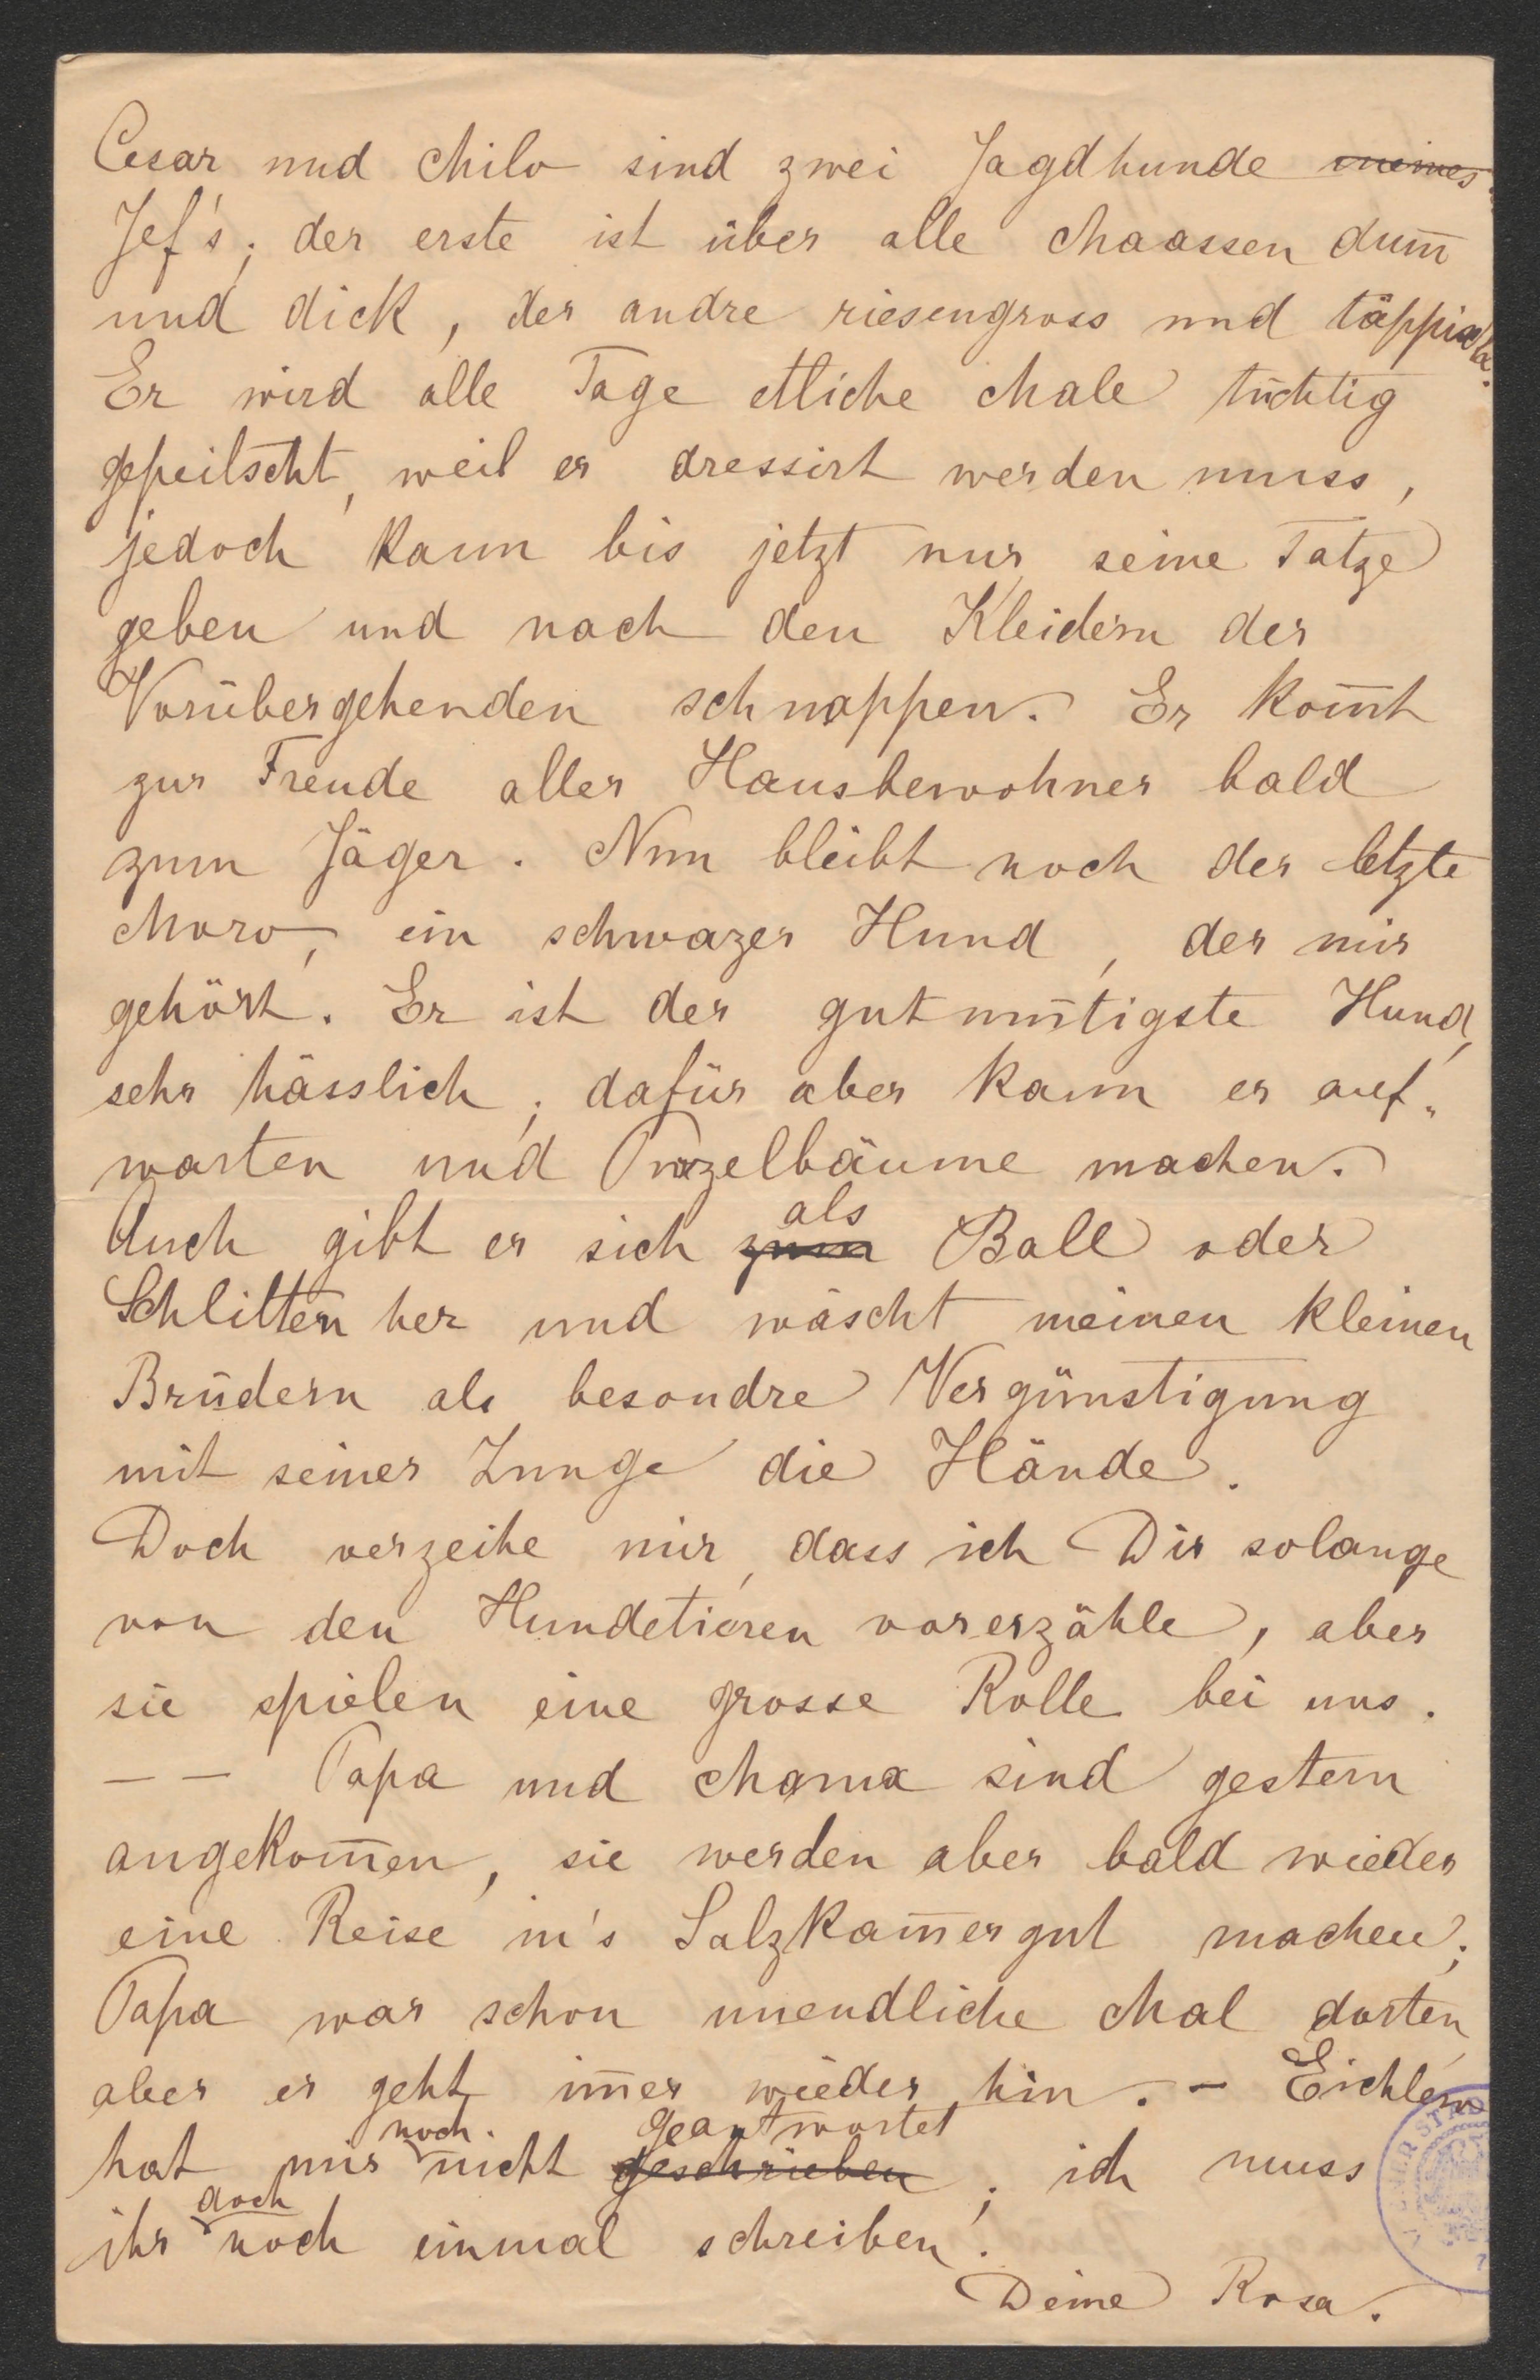 Cesar und Milo sind zwei Jagdhunde meines
Jef's; der erste ist über alle Maassen dum̄
und dick, der andre riesengross und täppisch.
Er wird alle Tage etliche Male tüchtig
gepeitscht, weil er dressirt werden muss,
jedoch kann bis jetzt nur seine Tatze
geben und nach den Kleidern der
Vorübergehenden schnappen. Er kom̄t
zur Freude aller Hausbewohner bald
zum Jäger. Nun bleibt noch der letzte
Moro, ein schwazer Hund, der mir
gehört. Er ist der gutmütigste Hund,
sehr hässlich; dafür aber kann er auf„
warten und Purzelbäume machen.
Auch gibt er sich zum als Ball oder
Schlitten her und wäscht meinen kleinen
Brüdern als besondre Vergünstigung
mit seiner Zunge die Hände.
Doch verzeihe mir, dass ich Dir solange
von den Hundetieren vorerzähle, aber
sie spielen eine grosse Rolle bei uns.
— — Papa und Mama sind gestern
angekom̄en, sie werden aber bald wieder
eine Reise in's Salzkam̄ergut machen;
Papa war schon unendliche Mal dorten,
aber er geht im̄er wieder hin. – Eichlern
hat mir noch nicht geschrieben geantwortet; ich muss
ihr doch noch einmal schreiben.
Deine Rosa.